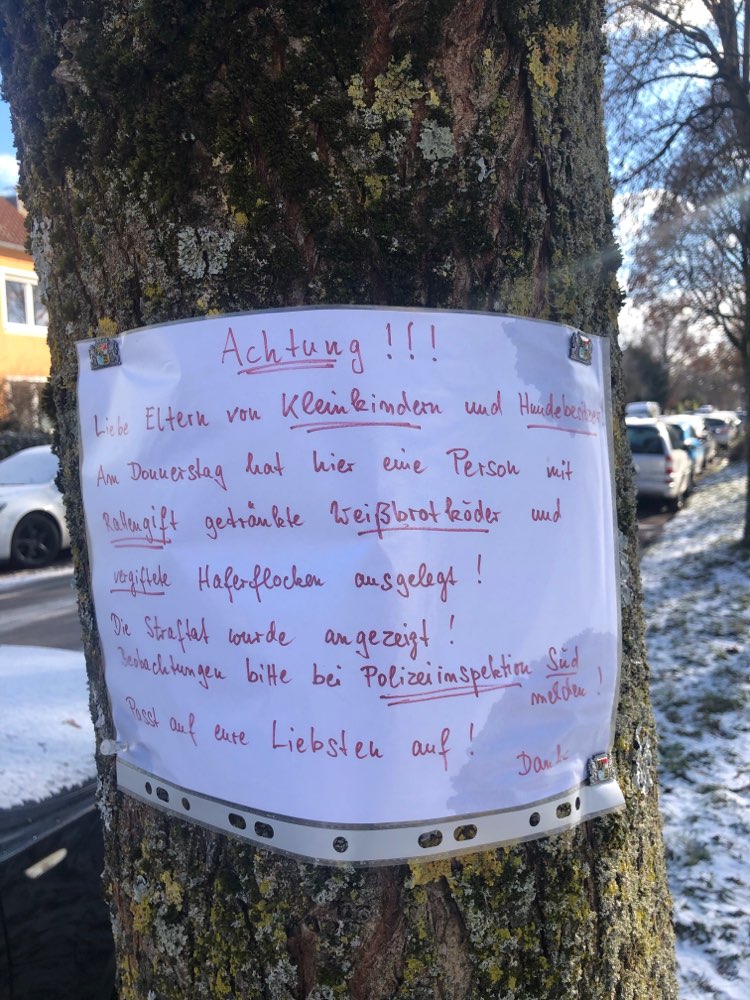 Achtung !!!
Liebe Eltern von Kleinkindern und Hundebesitzer
Am Donnerstag hat hier eine Person mit
Rattengift getränkte Weißbrotköder und
vergiftete Haferflocken ausgelegt !
Die Straftat wurde angezeigt !
Beobachtungen bitte bei Polizeiinspektion Süd
melden !
Passt auf eure Liebsten auf !
Dank